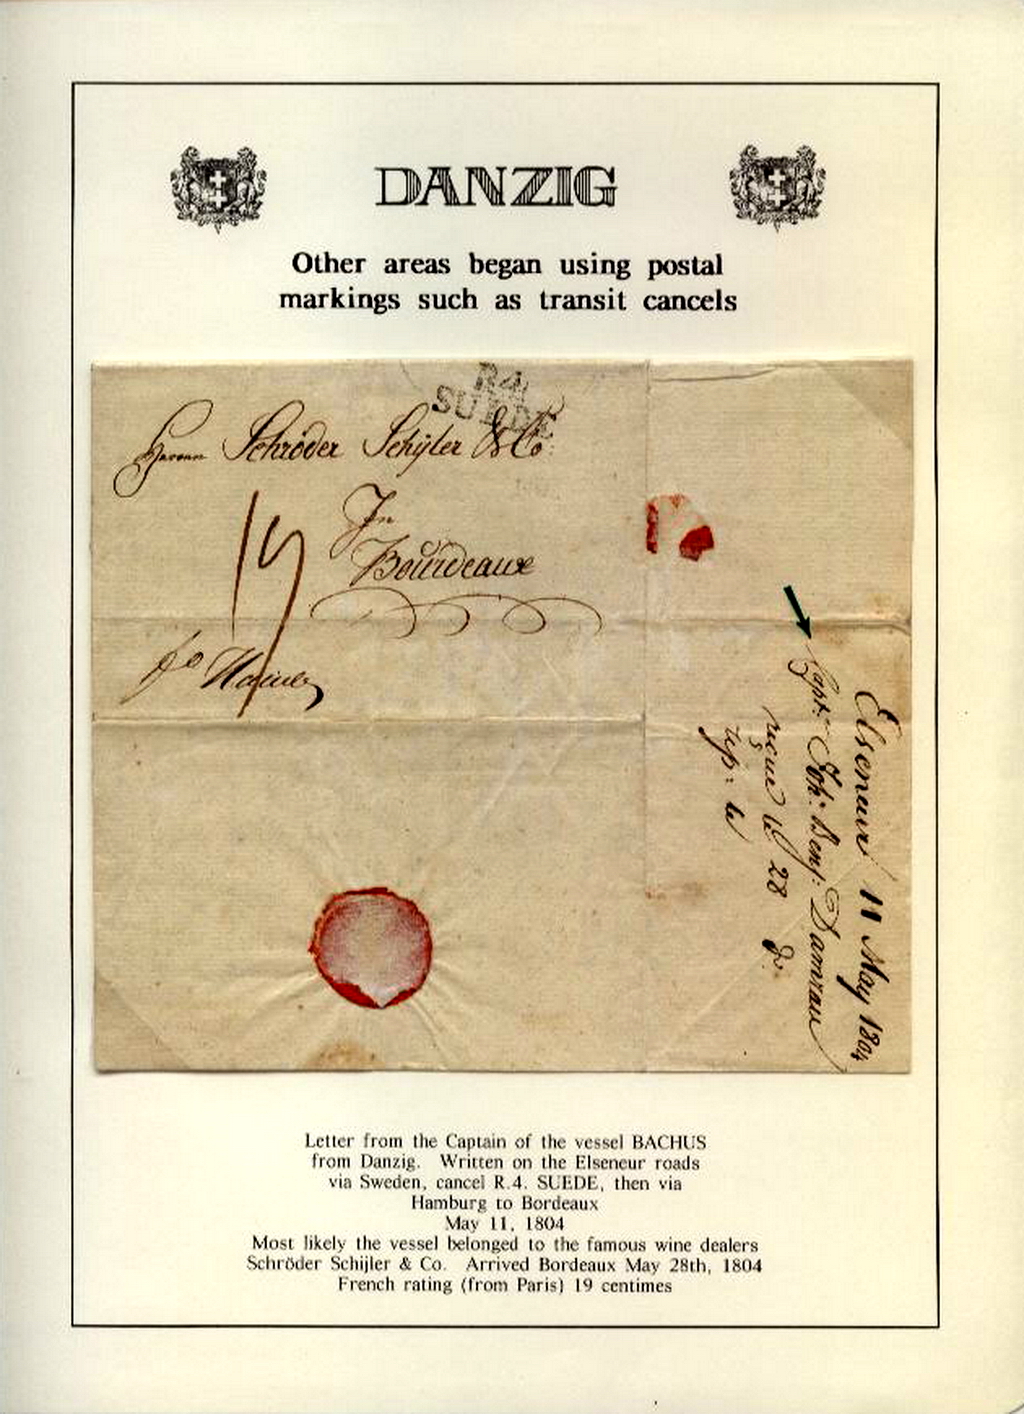 DANZIG
Other areas began using postal
markings such as transit cancels
R4
SUEDE
Herren Schröder Schÿler & Co:
In
Bourdeaux
19
fo
Elseneur 11 May 1804
Capt: Joh: Benj: Damrau
reçue le 28 do
rep: le
Letter from the Captain of the vessel BACHUS
from Danzig. Written on the Elseneur roads
via Sweden, cancel R.4. SUEDE, then via
Hamburg to Bordeaux
May 11, 1804
Most likely the vessel belonged to the famous wine dealers
Schröder Schijler & Co. Arrived Bordeaux May 28th, 1804
French rating (from Paris) 19 centimes